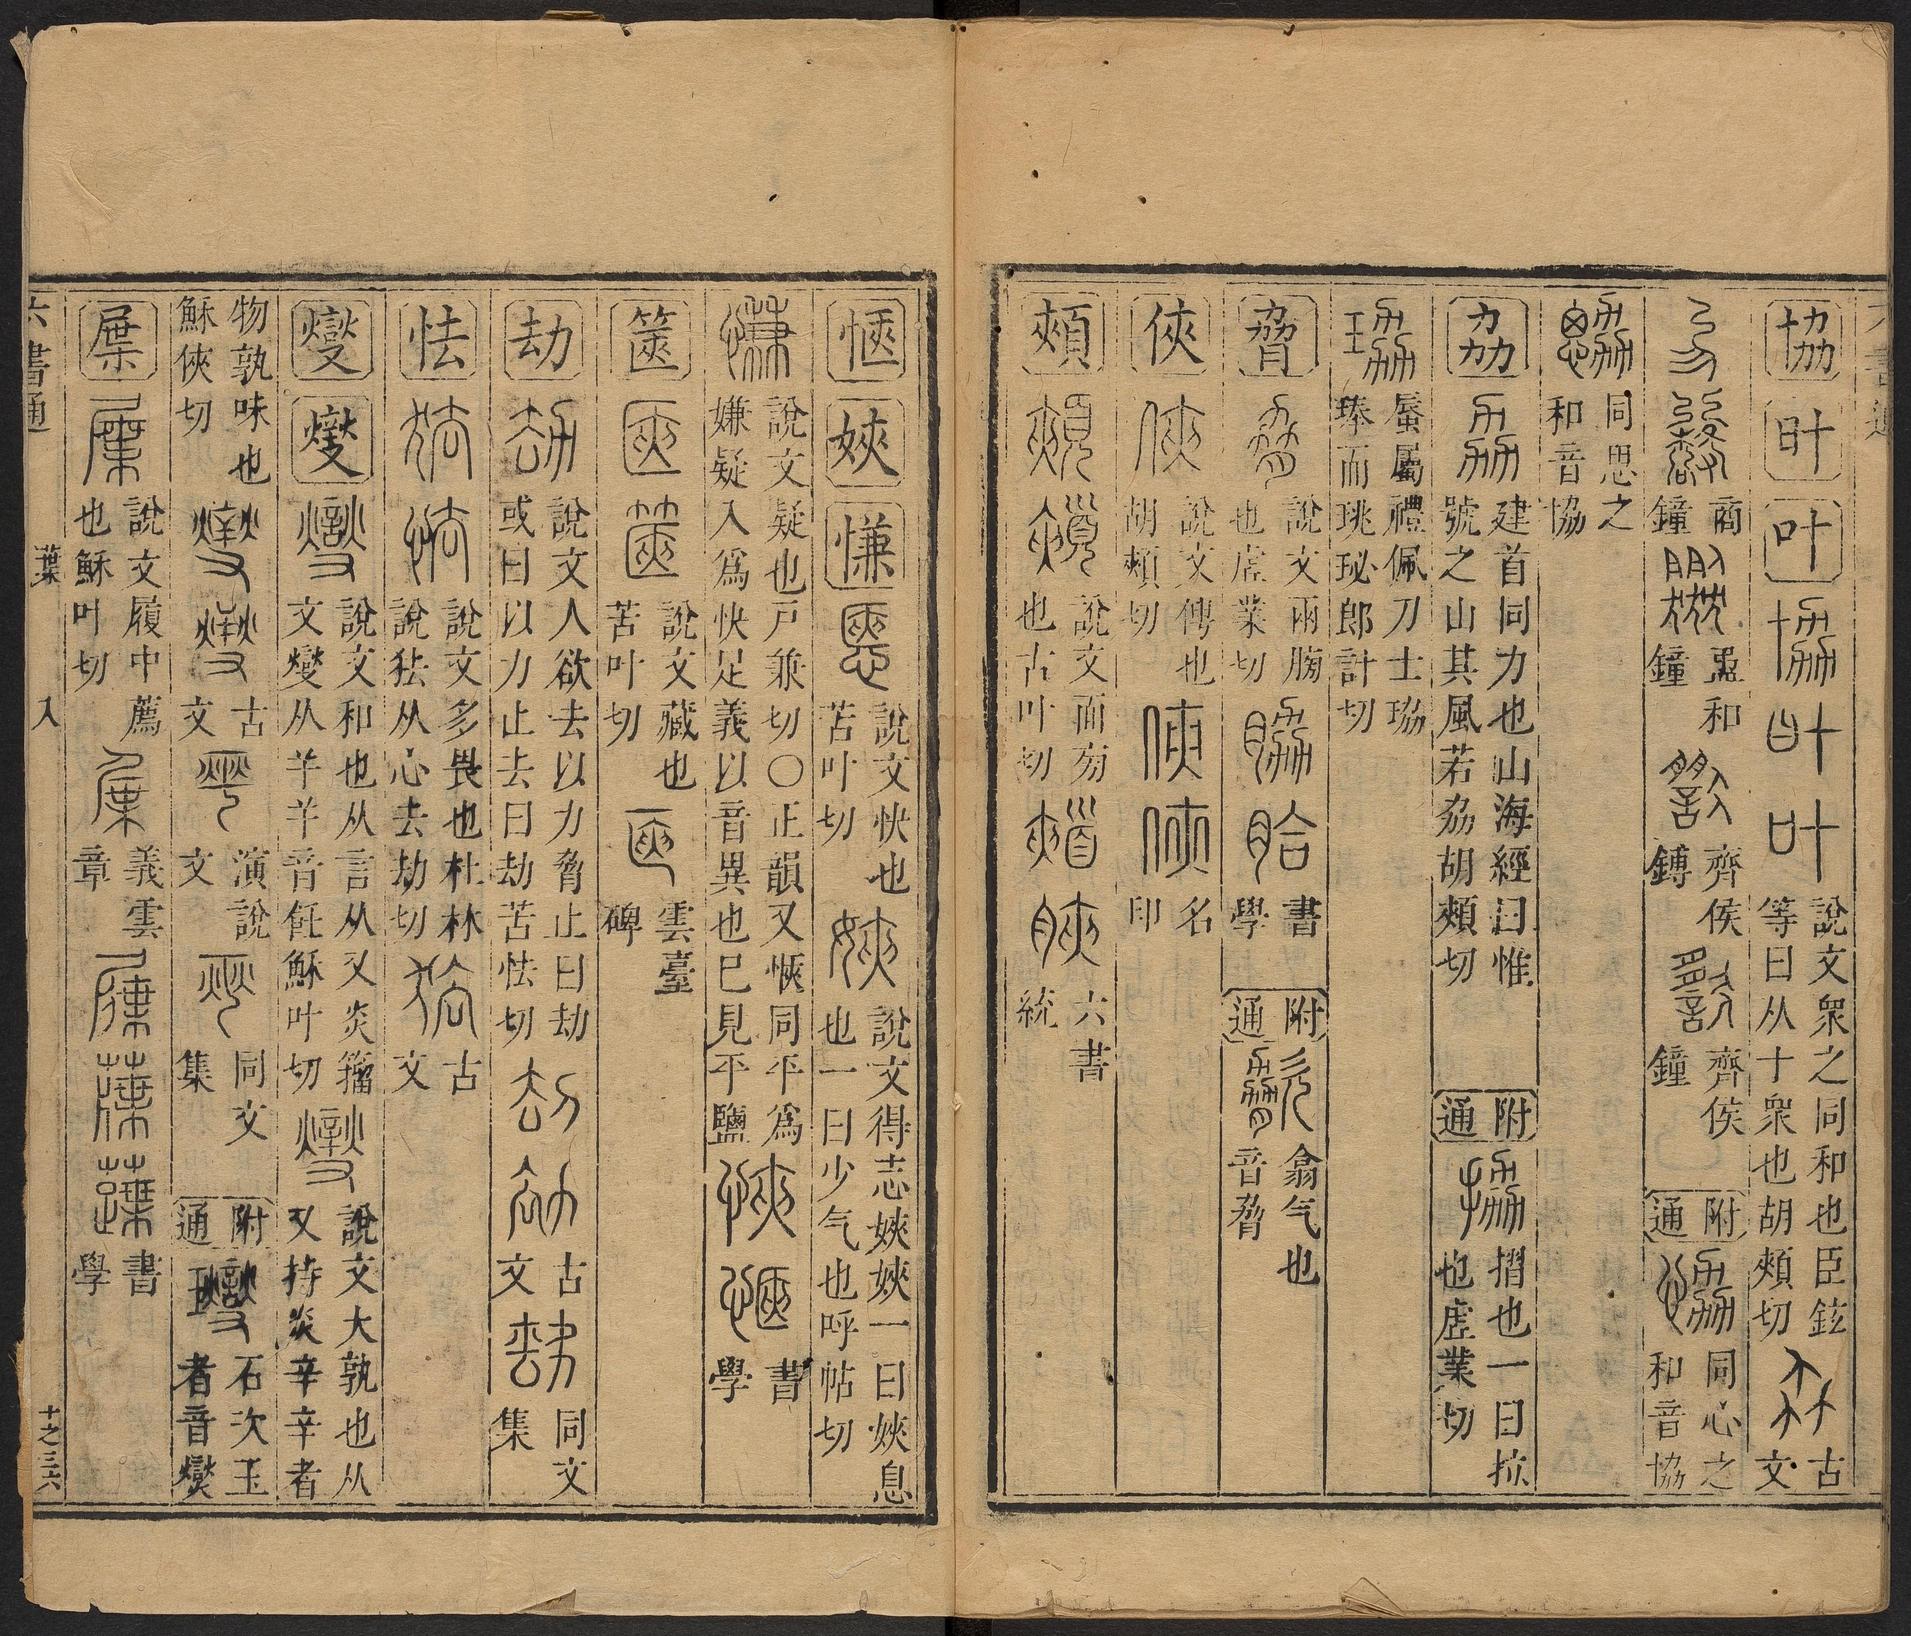 協 叶 叶 說文衆之同和也臣鉉等曰从十衆也胡頰切 古文
商鐘 盄和鐘 齊侯鎛 齊侯鐘 附通 同心之和音協
同思之和音協
劦 建首同力也山海經曰惟號之山其風若劦胡頰切 附通 摺也一曰拉也虛業切
蜃屬禮佩刀士珕琫而珧珌郎計切
脅 說文兩膀也虛業切 書學 附通 翕气也音脅
俠 說文俜也胡頰切 名印
頰 說文面旁也古叶切 六書統
愜 㛍 慊 說文快也苦叶切 說文得志㛍㛍一曰㛍息也一曰少气也呼帖切
說文疑也戶兼切〇正韻又愜同平爲嫌疑入爲快足義以音異也已見平鹽 書學
篋 說文藏也苦叶切 雲臺碑
劫 說文人欲去以力脅止曰劫或曰以力止去曰劫苦怯切 古文 同文集
怯 說文多畏也杜林說㹤从心去劫切 古文
燮 燮 說文和也从言从又炎籀文燮从羊羊音飪穌叶切 說文大孰也从又持炎辛辛者
物孰味也穌俠切 古文 演說文 同文集 附通 石次玉者音燮
屟 說文履中薦也穌叶切 義雲章 書學
六書通 葉 入 十之三六